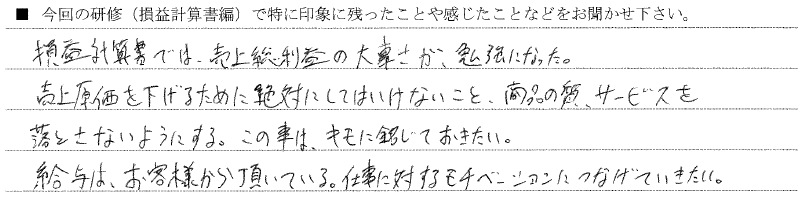 ■ 今回の研修（損益計算書編）で特に印象に残ったことや感じたことなどをお聞かせ下さい。
損益計算書では、売上総利益の大事さが、勉強になった。
売上原価を下げるために絶対にしてはいけないこと、商品の質、サービスを
落とさないようにする。この事は、キモに銘じておきたい。
給与は、お客様から頂いている。仕事に対するモチベーションにつなげていきたい。